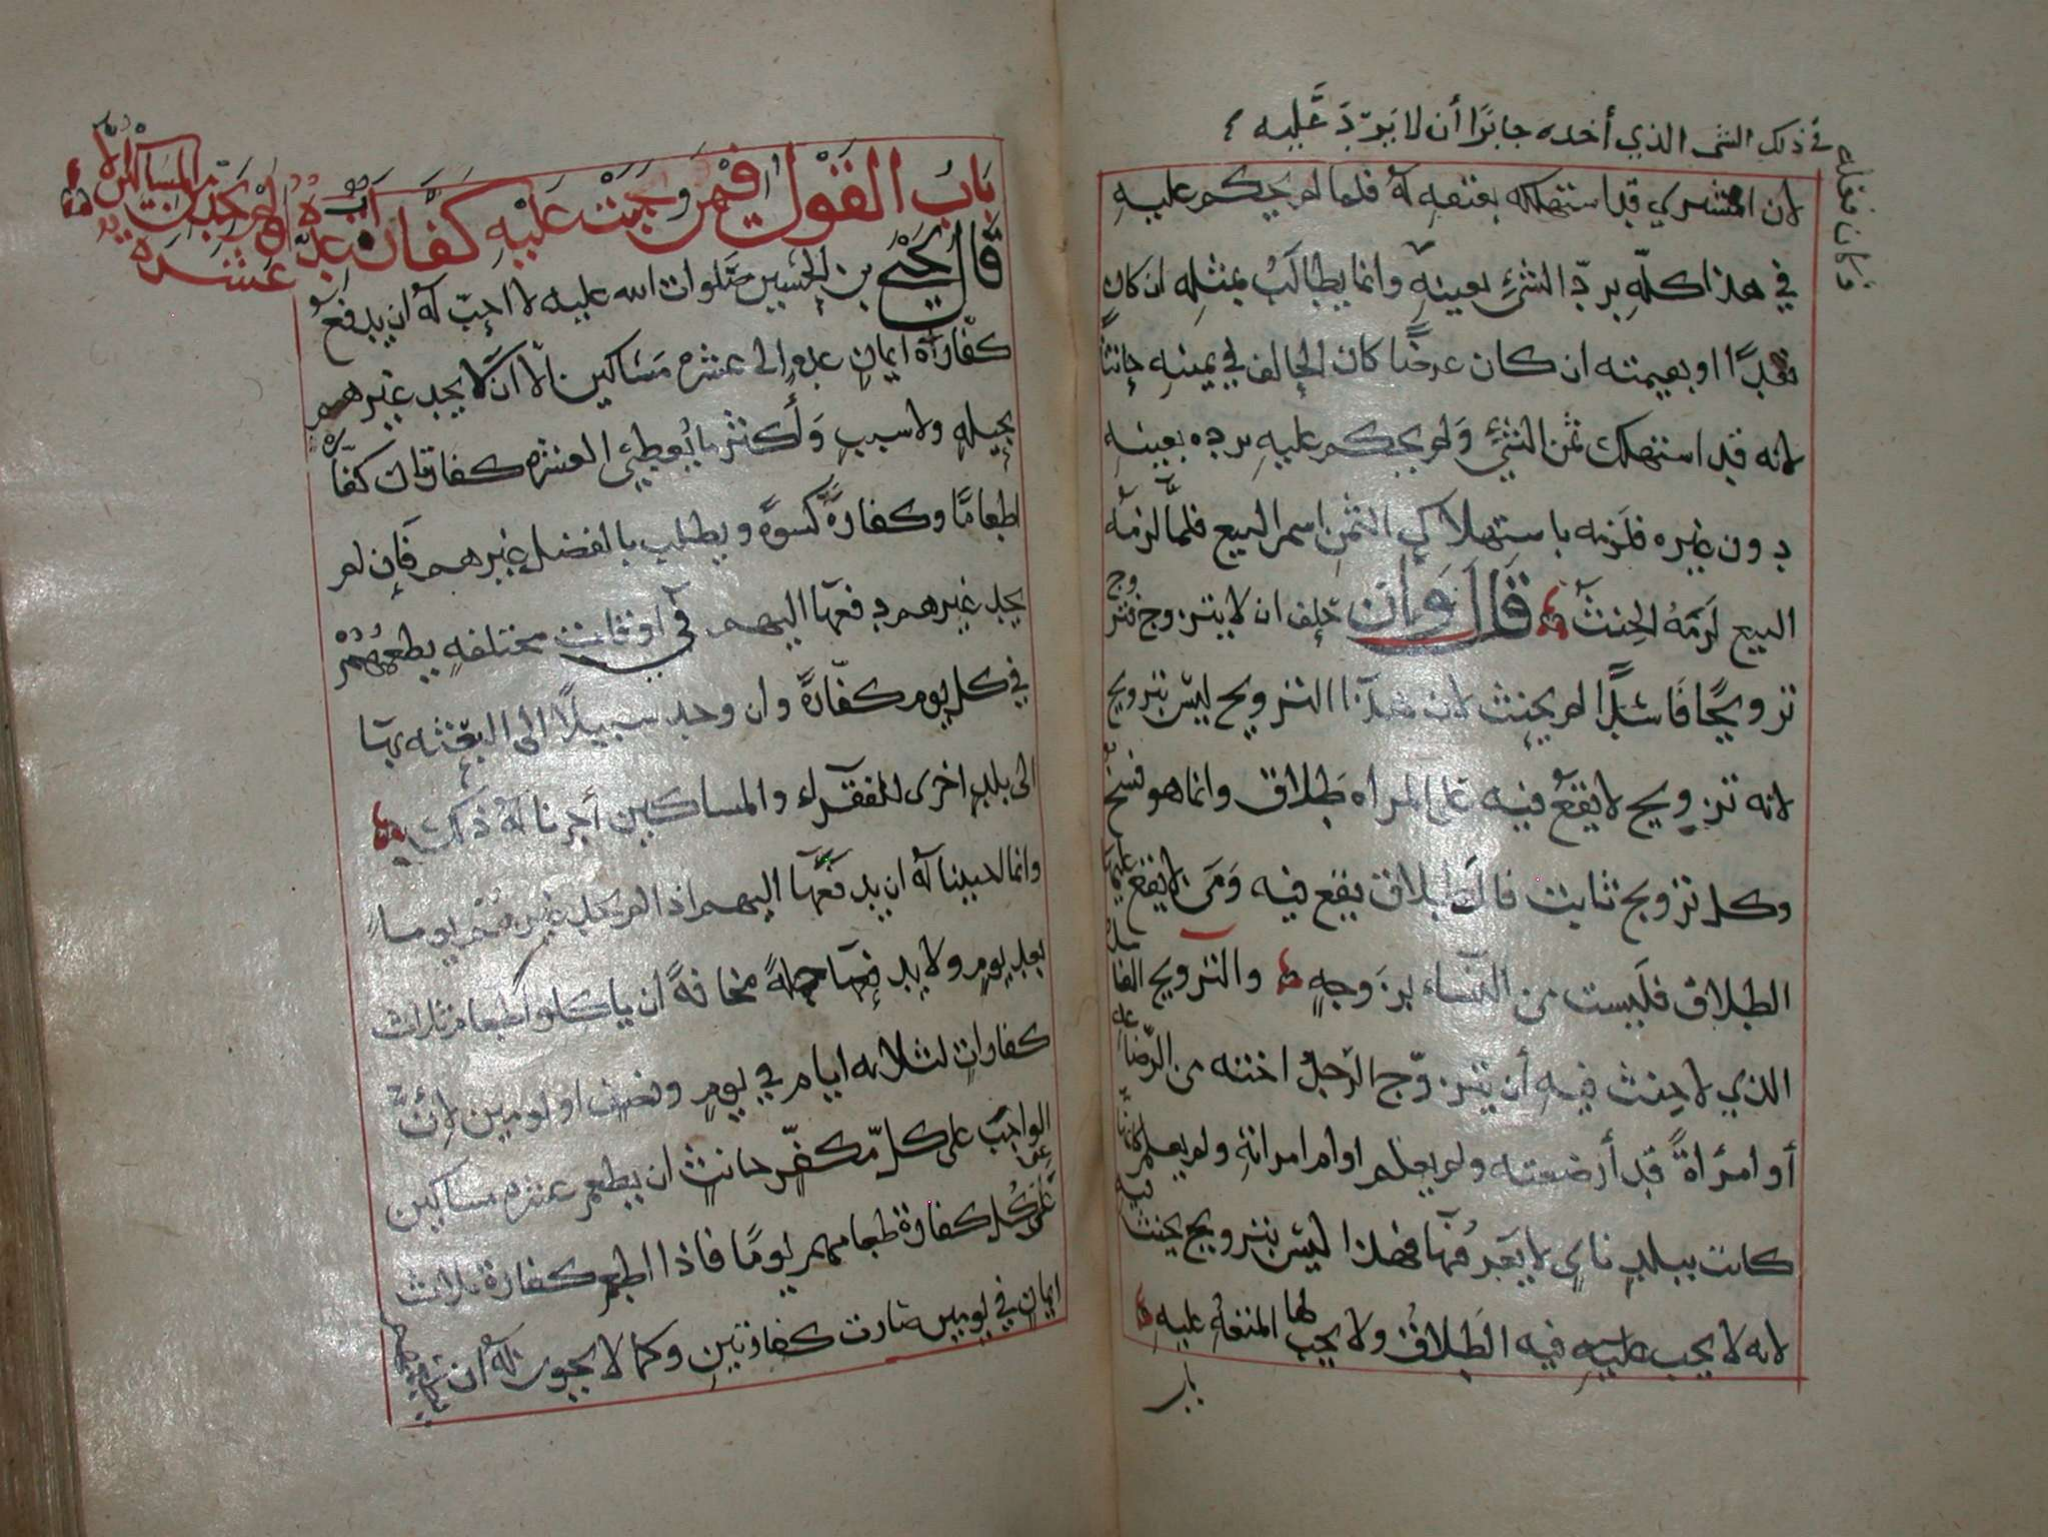 في ذلك الشي الذي أخذه جايزًا أن لا يردّ عليه
فكان فعله
لان المشتري قد استهلكه بعتقه له فلما لم يحكم عليه
في هذا كلّه بردّ الشيء بعينه وانما يطالب بمثله ان كان
نقدًا او بقيمته ان كان عرضًا كان الحالف في يمينه حانثًا
لانه قد استهلك ثمن الشئ ولم يحكم عليه برده بعينه
دون غيره فلزمه باستهلاك الثمن اسم البيع فلمّا لزمه
البيع لزمه الحنث قال وان حلف ان لا يتزوج فتزوج
تزويجًا فاسدًا لم يحنث لان هذا التزويج ليس بتزويج
لانه تزويج لا يقع فيه على المراه طلاق وانما هو فسخ
وكل تزويج ثابت فالطلاق يقع فيه ومن لا يقع عليها
الطلاق فليست من النساء بزوجةٍ والتزويج الفاسد
الذي لا حنث فيه أن يتزوّج الرجل اخته من الرضاعه
أو امرأةً قد أرضعته ولم يعلم او ام امراته ولم يعلم كأن
كانت ببلدٍ نايٍ لا يعرفها فهذا ليس بتزويج يحنث فيه
لانه لا يجب عليه فيه الطلاق ولا يجب لها المتعه عليه
باب
باب القول فيمن وجبت عليه كفارات عدّه ولم يجد من المساكين الا
عشره
قال يحيى بن الحسين صلوات الله عليه لا احبّ له ان يدفع
كفّارة ايمان عدهٍ الى عشره مساكين الا ان لا يجد غيرهم
بحيلهٍ ولا سببٍ وأكثر ما يعطي العشره كفارتان كفّاره
اطعامًا وكفارةً كسوةً ويطلب بالفضل غيرهم فإن لم
يجد غيرهم دفعها اليهم في اوقات مختلفهٍ يطعمهم
في كل يوم كفّارةً وان وجد سبيلًا الى البعثه بها
الى بلدٍ اخرى للفقراء والمساكين أجزنا له ذلك
وانما احببنا له ان يدفعها اليهم اذا لم يجد غيرهم يومًا
بعد يومٍ ولا يدفعها جملةً مخافةً ان ياكلوا طعام ثلاث
كفاراتٍ لثلاثه ايام في يومٍ ونصف او يومين لأن
الواجب على كلّ مكفّرٍ حانثٍ ان يطعم عشره مساكين
عن كل كفارة طعامهم يومًا فاذا اطعم كفارة ثلاث
ايمان في يومين صارت كفارتين وكما لا يجوز له ان